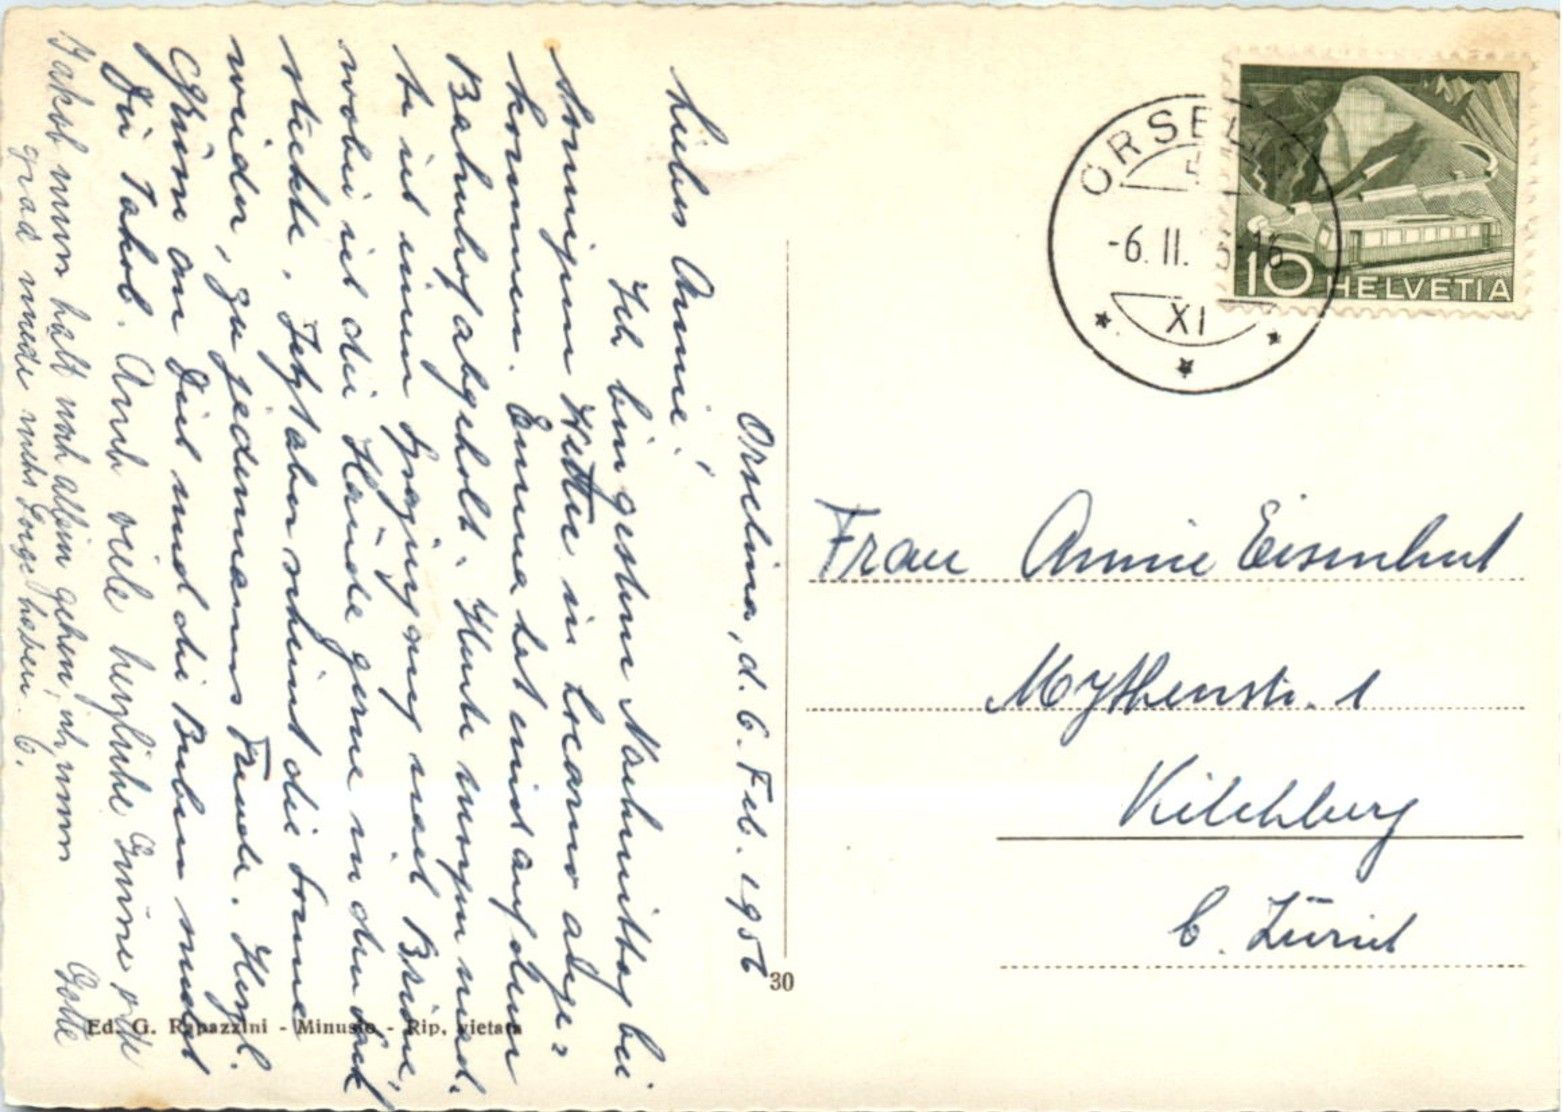 Orselina, d. 6. Feb. 1956
Liebes Annie!
Ich bin gestern Nachmittag bei
sonnigem Wetter in Locarno ange=
kommen. Emma hat mich auf dem
Bahnhof abgeholt. Heute morgen mach.
te ich einen Spaziergang nach Brione,
wobei ich die Hände gerne in den Sack
steckte. Jetzt aber scheint die Sonne
wieder, zu jedermanns Freude. Herzl.
Grüsse an Dich und die Buben und
Dein Jakob. Auch viele herzliche Grüsse
Gotte
Jakob muss halt noch allein gehen, ich muss
grad wieder mehr Sorge haben. E.
ORSELINA
-6. II. -16
XI
10 HELVETIA
Frau Annie Eisenhut
Mythenstr. 1
Kilchberg
b. Zürich
30
Ed. G. Rapazzini - Minusio - Rip. vietata